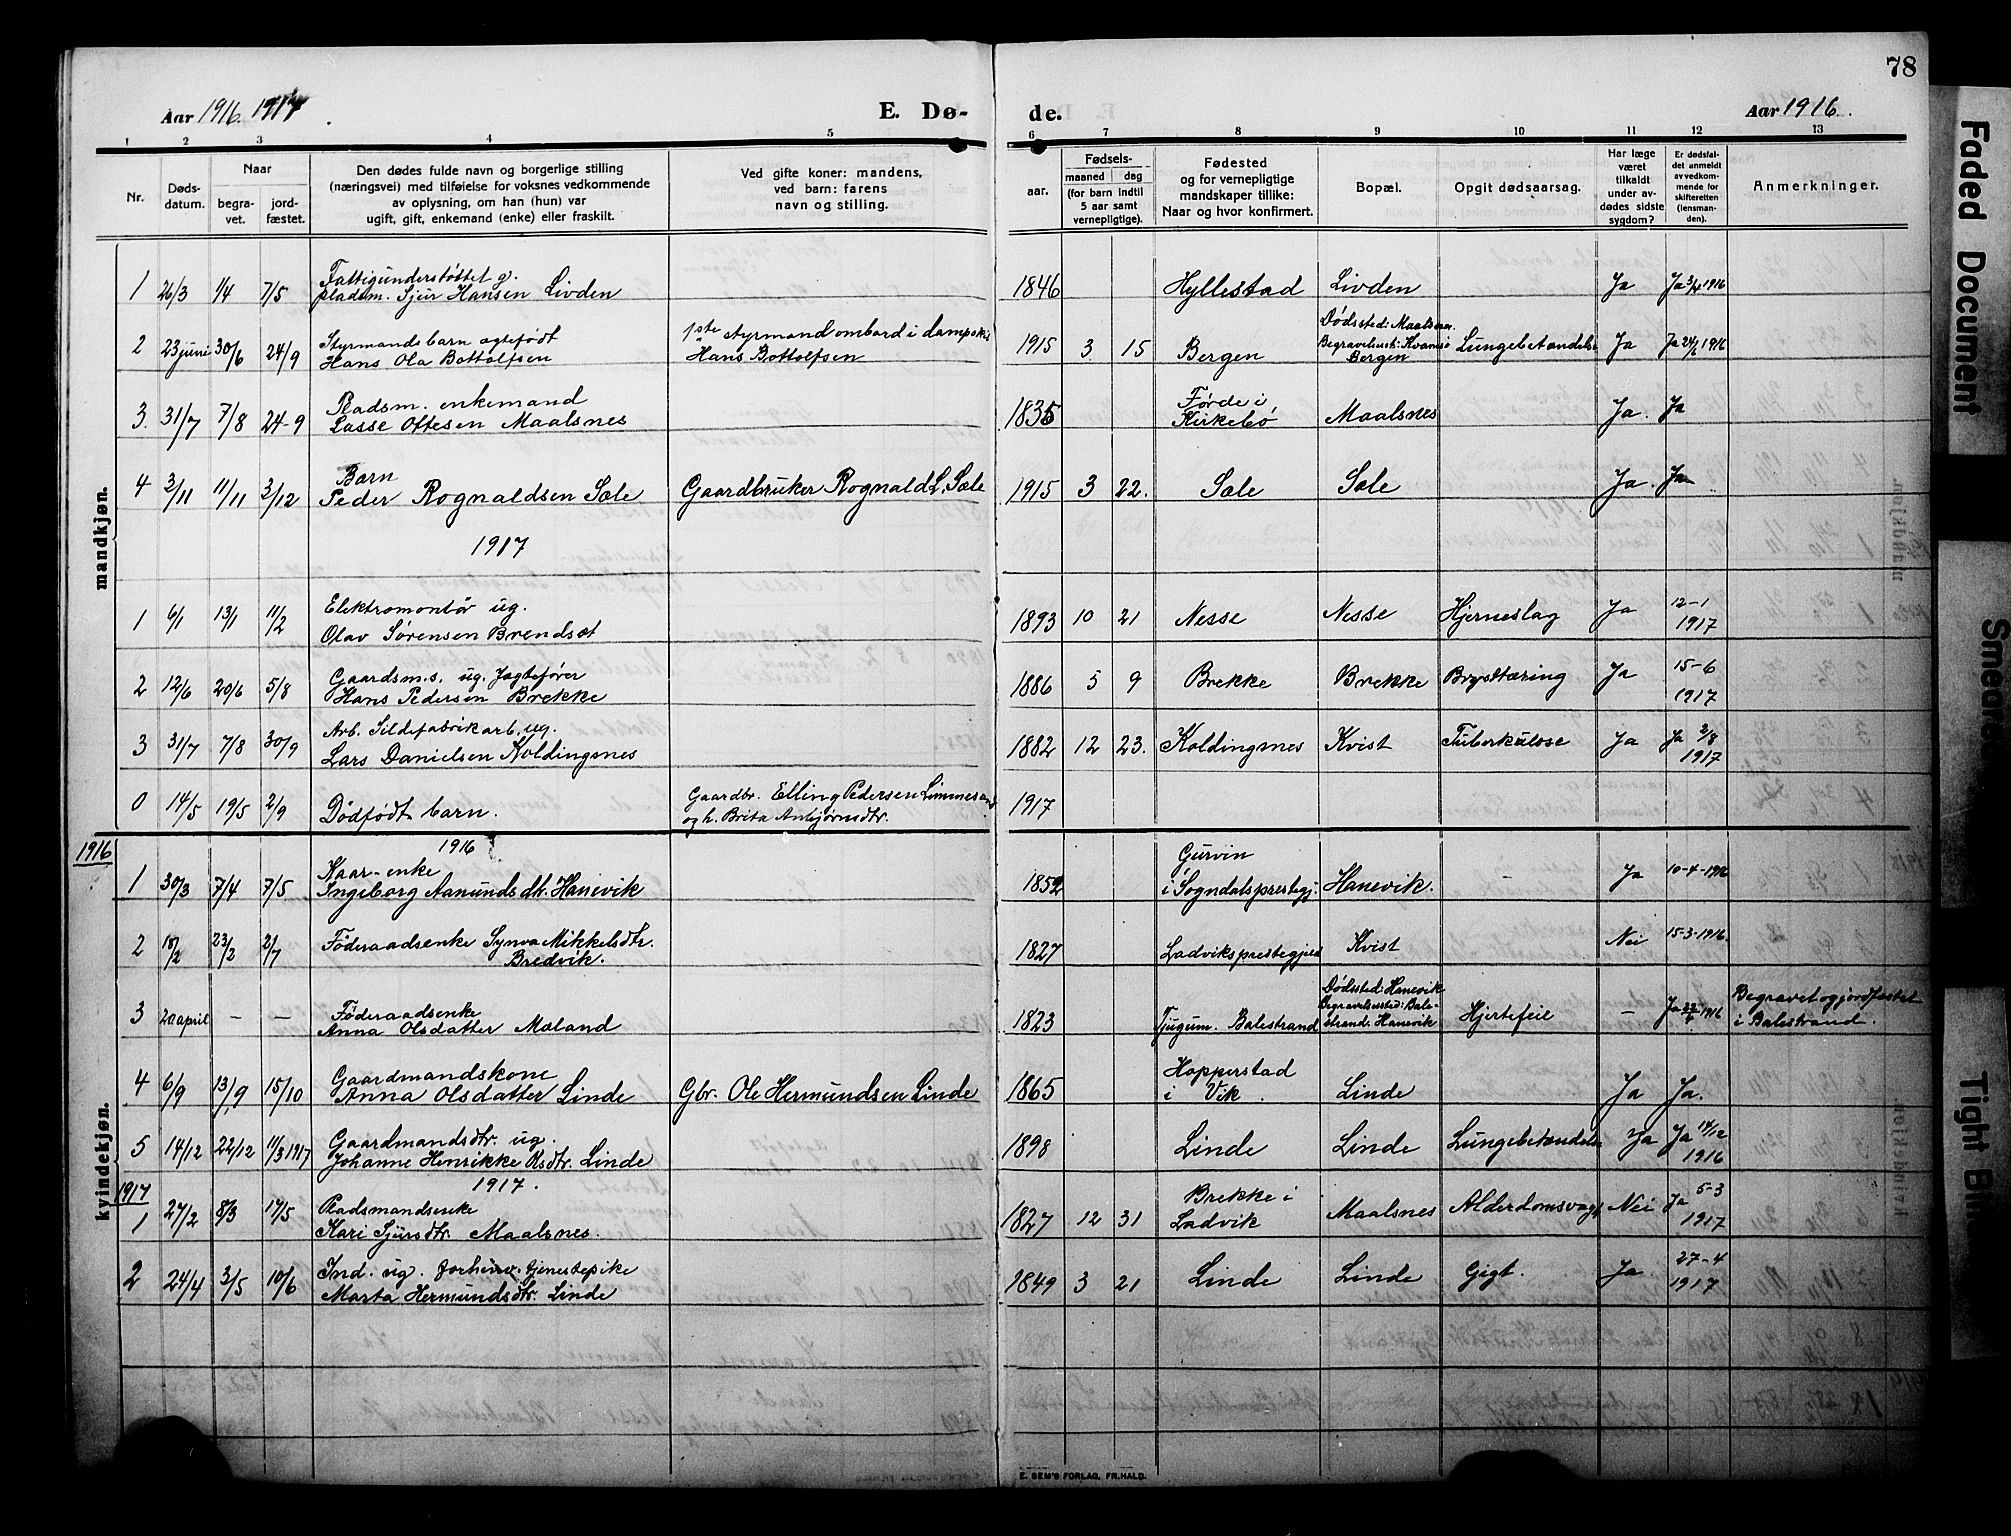 78
Aar 1916. 1917
E. Dø-
de.
Aar 1916.
1 2 3 4 5 6 7 8 9 10 11 12 13
Nr.
Døds-
datum.
Naar
begra-
vet.
jord-
fæstet.
Den dødes fulde navn og borgerlige stilling
(næringsvei) med tilføielse for voksnes vedkommende
av oplysning, om han (hun) var
ugift, gift, enkemand (enke) eller fraskilt.
Ved gifte koner: mandens,
ved barn: farens
navn og stilling.
Fødsels-
aar.
maaned dag
(for barn indtil
5 aar samt
vernepligtige).
Fødested
og for vernepligtige
mandskaper tillike:
Naar og hvor konfirmert.
Bopæl.
Opgit dødsaarsag.
Har læge
været
tilkaldt
under av-
dødes sidste
sygdom?
Er dødsfal-
det anmeldt
av vedkom-
mende for
skifteretten
(lensman-
den).
Anmerkninger.
mandkjøn.
Fattigunderstøttet g.
1 26/3 1/4 7/5 pladsm. Sjur Hansen Livden 1846 Hyllestad Livden Ja Ja 3/4 1916
Styrmandsbarn ægtefødt 1ste styrmand ombord i dampski Dødssted: Maalsnes.
2 23 juni 30/6 24/9 Hans Ola Bottolfsen Hans Bottolfsen 1915 3 15 Bergen Begravelsest: Kvamsø Lungebetændelse Ja Ja 24/6 1916
Bergen
Pladsm. enkemand Førde i
3. 31/7 7/8 24-9 Lasse Ottesen Maalsnes 1835 Kirkebø Maalsnes Ja. Ja
Barn
4 3/11 11/11 3/12 Peder Rognaldsen Sæle Gaardbruker Rognald L. Sæle 1915 3 22. Sæle Sæle Ja. Ja
1917
Elektromontør ug. 12-1
1 6/1 13/1 11/2 Olav Sørensen Brendsæt 1893 10 21 Nesse Nesse Hjerneslag Ja 1917
Gaardsm.s. ug. Jagtefører 15-6
2 12/6 20/6 5/8 Hans Pedersen Brekke 1886 5 9 Brekke Brekke Brysttæring Ja 1917
Arb. Sildefabrikarb. ug.
3 31/7 7/8 30/9 Lars Danielsen Koldingsnes 1882 12 23. Koldingsnes Kvist Tuberkulose Ja Ja 3/8
1917
Gaardbr. Elling Pedersen Limmesand
0 14/5 19/5 2/9 Dødfødt barn. og h. Brita Anbjørnsdtr. 1917
kvindekjøn.
1916
1916
Kaar-enke Gurvin
1 30/3 7/4 7/5 Ingeborg Aamundsdtr. Hanevik 1852 i Sogndalsprestegj. Hanevik. - Ja 10-4-1916
2 18/2 23/2 2/7 Føderaadsenke Synva Mikkelsdtr.
Bredvik. 1827 Ladviksprestegjeld Kvist Nei 15-3-1916.
Føderaadsenke Dødssted: Hanevik Begravet og jordfæstet
3 20 april - - Anna Olsdatter Mæland 1823 Tjugum. Balestrand Begravelsessted: Bale- Hjertefeil - Ja 22/4 1916 i Balestrand.
strand. Hanevik
Gaardmandskone Hopperstad
4 6/9 13/9 15/10 Anna Olsdatter Linde Gbr. Ole Hermundsen Linde 1865 i Vik. Linde Ja Ja.
Gaardmandsdtr. ug.
5 14/12 22/12 11/3 1917 Johanne Henrikke Olsdtr. Linde 1898 Linde Linde Lungebetændelse Ja Ja 14/12
1916
1917
1917.
Pladsmandsenke Brekke i Ja 5-3
1 27/2 8/3 17/5 Kari Sjursdtr. Maalsnes. 1827 12 31 Ladvik Maalsnes Alderdomsvagh Nei 1917
Ind. ug. forhenv. tjenestepike 27-4
2 24/4 3/5 10/6 Marta Hermundsdtr. Linde 1849 3 21 Linde Linde Gigt. Ja 1917
E. SEM'S FORLAG, FR.HALD.
Faded Document
Smeared
Tight Bin